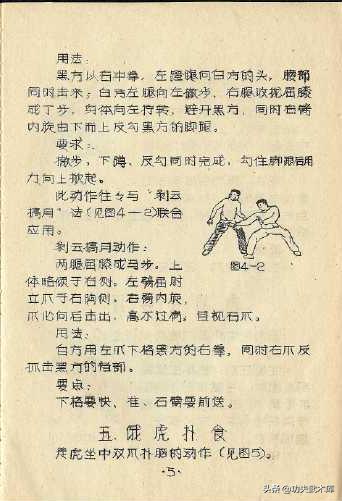 用法:
黑方以右冲拳，左蹬腿向白方的头，腹部
同时击来；白方左腿向左撤步，右腿收抱屈膝
成丁步，身体向左拧转，避开黑方，同时右臂
内旋由下而上反勾黑方的脚跟。
要求:
撤步，下蹲，反勾同时完成，勾住脚跟后用
力向上掀起。
此动作往专与“剩云
搞用”法(见图4—2)联合
应用。
图4-2
云搞用动作:
两腿屈膝成马步。上
体略倾于右侧。左臂屈肘
立爪于右胸侧，右臂内旋，
爪心向后击出，高不过胸，目视右爪。
用法:
白方用左爪下格黑方的右拳，同时右爪反
抓击黑方的裆部。
要点:
下格要快、准、右臂要前送。
五.饿虎扑食
虎坐中双爪扑脑的动作(见图5)。
·5·
头条 @功夫武术库